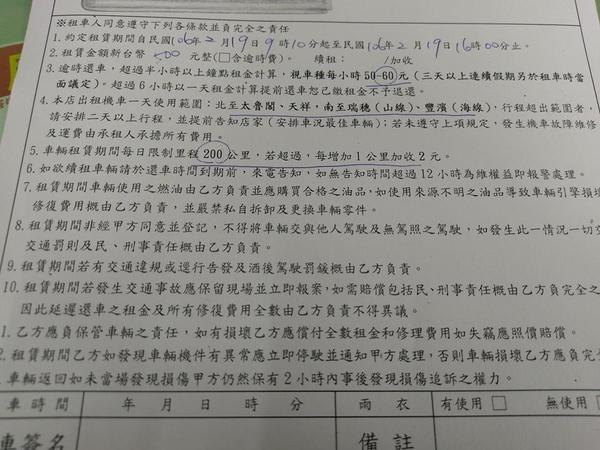 ※租車人同意遵守下列各條款並負完全之責任
1. 約定租賃期間自民國106年2月19日9時10分起至民國106年2月19日16時00分止。
2. 租賃金額新台幣 00 元整(□含逾時費)。 續租: /加收
3. 逾時還車,超過半小時以上鐘點租金計算,視車種每小時50-60元(三天以上連續假期另於租車時當
面議定)。超過6小時以一天租金計算提前還車恕已繳租金不予退還。
4. 本店出租機車一天使用範圍:北至太魯閣、天祥,南至瑞穗(山線)、豐濱(海線),行程超出範圍者,
請安排二天以上行程,並提前告知店家(安排車況最佳車輛);若未遵守上項規定,發生機車故障維修
及運費由承租人承擔所有費用。
5. 車輛租賃期間每日限制里程200公里,若超過,每增加1公里加收2元。
6. 如欲續租車輛請於還車時間到期前,來電告知,如無告知時間超過12小時為維權益即報警處理。
7. 租賃期間車輛使用之燃油由乙方負責並應購買合格之油品,如使用來源不明之油品導致車輛引擎損壞
修復費用概由乙方負責,並嚴禁私自拆卸及更換車輛零件。
8. 租賃期間非經甲方同意並登記,不得將車輛交與他人駕駛及無駕照之駕駛,如發生此一情況一切交
交通罰則及民、刑事責任概由乙方負責。
9. 租賃期間若有交通違規或逕行告發及酒後駕駛罰鍰概由乙方負責。
10. 租賃期間若發生交通事故應保留現場並立即報案,如需賠償包括民、刑事責任概由乙方負完全之
因此延遲還車之租金及所有修復費用全數由乙方負責不得異議。
1. 乙方應負保管車輛之責任,如有損壞乙方應償付全數租金和修理費用如失竊應照價賠償。
2. 租賃期間乙方如發現車輛機件有異常應立即停駛並通知甲方處理,否則車輛損壞乙方應負完
車輛返回如未當場發現損傷甲方仍然保有2小時內事後發現損傷追訴之權力。
車時間 年 月 日 時 分 雨衣 有使用□ 無使用□
車簽名 備註